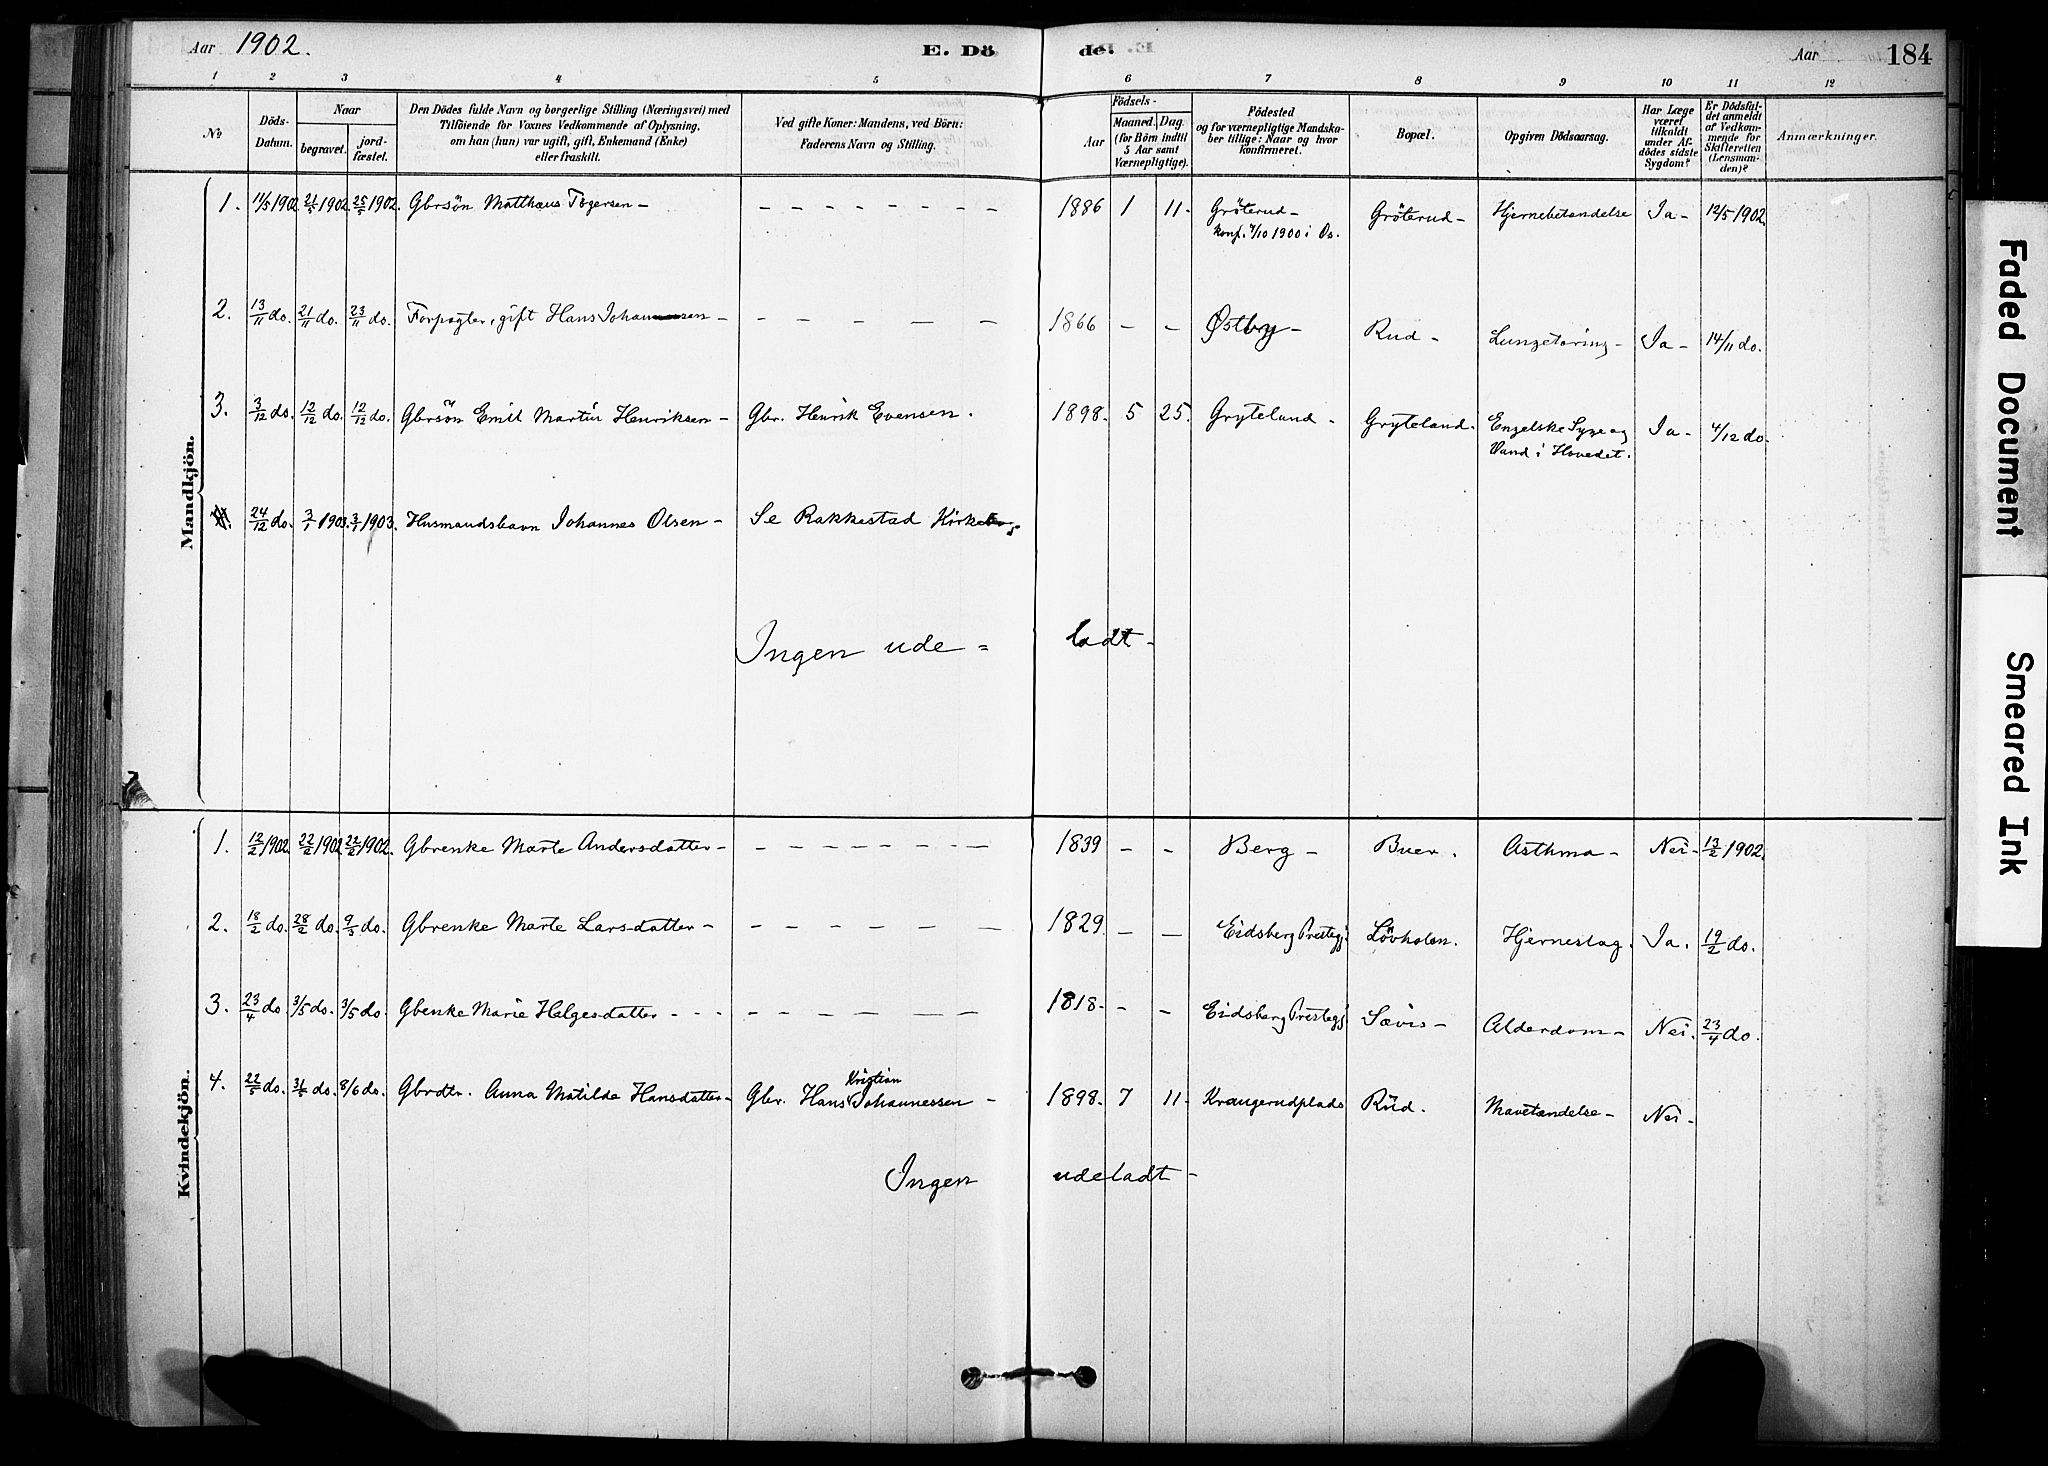 Aar 1902.
E. Dö de.
Aar 184
1 2 3 4 5 6 7 8 9 10 11 12
No
Döds-Datum.
Naar
begravet.
jord-fæstet.
Den Dödes fulde Navn og borgerlige Stilling (Næringsvei) med
Tilföiende for Voxnes Vedkommende af Oplysning,
om han (hun) var ugift, gift, Enkemand (Enke)
eller fraskilt.
Ved gifte Koner: Mandens, ved Börn:
Faderens Navn og Stilling.
Födsels-
Aar
Maaned. Dag
(for Börn indtil
5 Aar samt
Værnepligtige).
Födested
og for værnepligtige Mandska-
ber tillige: Naar og hvor
konfirmeret.
Bopæl.
Opgiven Dödsaarsag.
Har Læge
været
tilkaldt
under Af-
dödes sidste
Sygdom?
Er Dödsfal-
det anmeldt
af Vedkom-
mende for
Skifteretten
(Lensman-
den)?
Anmærkninger.
Mandkjön.
1. 11/5 1902 21/5 1902 25/5 1902. Gbrsön Matthæus Tøgersen - - - - - - - - 1886 1 11. Gröterud - Gröterud - Hjernebetændelse Ja - 12/5 1902.
konf. 7/10 1900 i Os.
2. 13/11 do. 21/11 do. 23/11 do. Forpagter, gift Hans Johannesen - - - - - - 1866 - - Østby - Rud - Lungetæring - Ja - 14/11 do.
3. 3/12 do. 12/12 do. 12/12 do. Gbrsön Emil Martin Henriksen - Gbr. Henrik Evensen. 1898. 5 25. Gryteland - Gryteland. Engelske Syge og Ja - 4/12 do.
Vand i Hovedet.
4. 24/12 do. 3/1 1903. 3/1 1903. Husmandsbarn Johannes Olsen - Se Rakkestad Kirkebog
Ingen ude = ladt -
Kvindekjön.
1. 12/2 1902 22/2 1902 22/2 1902. Gbrenke Marte Andersdatter - - - - - - - - 1839 - - Berg - Buer. Asthma - Nei - 13/2 1902.
2. 18/2 do. 28/2 do. 9/3 do. Gbrenke Marte Larsdatter - - - - - - - 1829 - - Eidsberg Prestegj. Lövholen. Hjerneslag. Ja. 19/2 do.
3. 23/4 do. 3/5 do. 3/5 do. Gbenke Marie Helgesdatter - - - - - - - - 1818 - - - Eidsberg Prestegj Sævis - Alderdom - Nei. 23/4 do.
Kristian
4. 22/5 do. 31/5 do. 8/6 do. Gbrdtr. Anna Matilde Hansdatter - Gbr. Hans Johannessen - 1898. 7 11. Krangerudplads Rud. Mavetændelse - Nei -
Ingen udeladt -
Faded Document
Smeared Ink